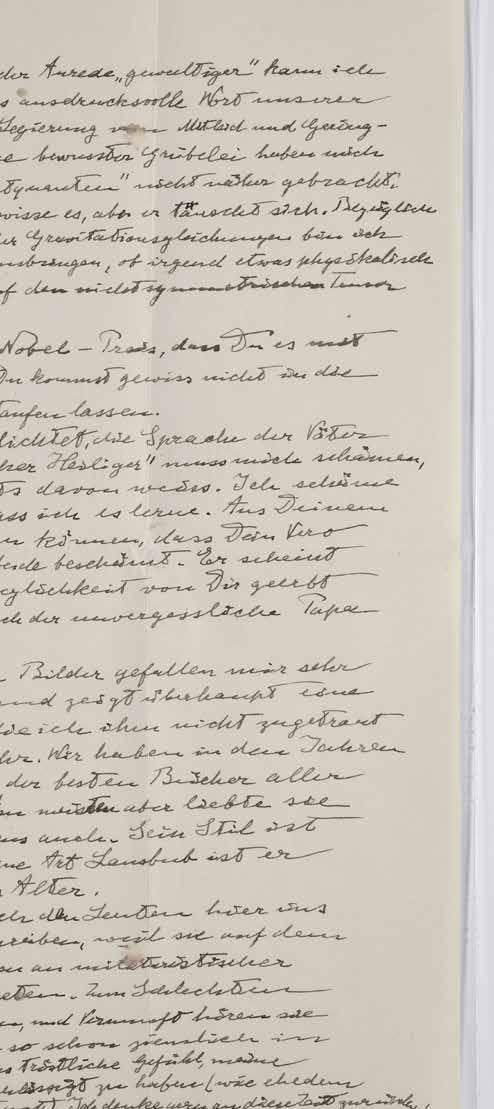 der Anrede „gewaltiger" kann ich
s ausdrucksvolle Wort unserer
Legierung von Mitleid und Gering-
e bewusster Grübelei haben mich
tquanten" nicht näher gebracht.
wisse es, aber er täuscht sich. Bezüglich
er Gravitationsgleichungen bin ich
nsbringen, ob irgend etwas physikalisch
f den nichtsymmetrischen Tensor
Nobel-Preis, dass Du es mit
Du kommst gewiss nicht in die
aufen lassen.
lichtet, die Sprache der Väter
cher Heiliger" muss mich schämen,
ts davon weiss. Ich schäme
ass ich es lerne. Aus Deinem
n können, dass Dein Vero
beide beschämt. Er scheint
eglichkeit von Dir geerbt
ch der unvergessliche Papa
Bilder gefallen mir sehr
und zeigt überhaupt eine
die ich ihm nicht zugetraut
hr. Wir haben in den Jahren
der besten Bücher aller
m meisten aber liebte sie
uns auch. Sein Stil ist
ne Art Lausbub ist er
Alter.
ch den Leuten hier ins
hreiben, weil sie auf dem
an militaristischer
eten. Zum Schlechten
n, und Vernunft hören sie
so schon ziemlich in
s tröstliche Gefühl, meine
lässigt zu haben (wie ehedem
Ich denke gern an diese Zeit zurück,